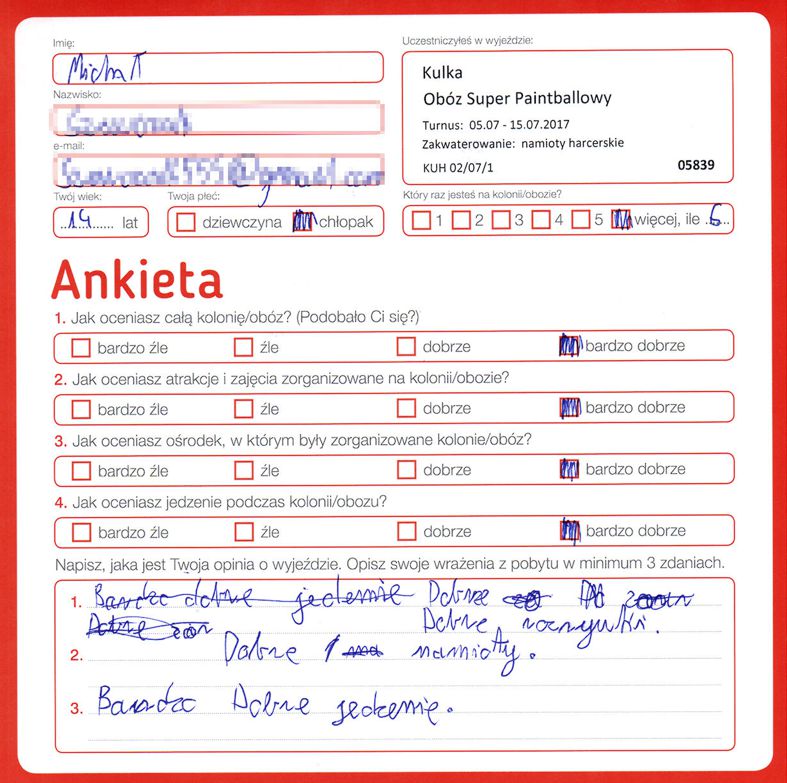 Imię:
Michał
Uczestniczyłeś w wyjeździe:
Kulka
Obóz Super Paintballowy
Turnus: 05.07 - 15.07.2017
Zakwaterowanie: namioty harcerskie
KUH 02/07/1 05839
Nazwisko:
e-mail:
Twój wiek:
14 lat
Twoja płeć:
dziewczyna chłopak
Który raz jesteś na kolonii/obozie?
1 2 3 4 5 więcej, ile 6
Ankieta
1. Jak oceniasz całą kolonię/obóz? (Podobało Ci się?)
bardzo źle źle dobrze bardzo dobrze
2. Jak oceniasz atrakcje i zajęcia zorganizowane na kolonii/obozie?
bardzo źle źle dobrze bardzo dobrze
3. Jak oceniasz ośrodek, w którym były zorganizowane kolonie/obóz?
bardzo źle źle dobrze bardzo dobrze
4. Jak oceniasz jedzenie podczas kolonii/obozu?
bardzo źle źle dobrze bardzo dobrze
Napisz, jaka jest Twoja opinia o wyjeździe. Opisz swoje wrażenia z pobytu w minimum 3 zdaniach.
1. Bardzo dobre jedzenie Dobrze
Dobre Dobre rozrywki.
2. Dobre namioty.
3. Bardzo Dobre jedzenie.